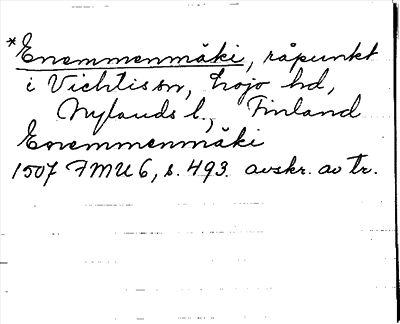 *Enemmenmäki, råpunkt
i Vichtis sn, Lojo hd,
Nylands l., Finland
Enemmenmäki
1507 FMU 6, s. 493. avskr. av tr.